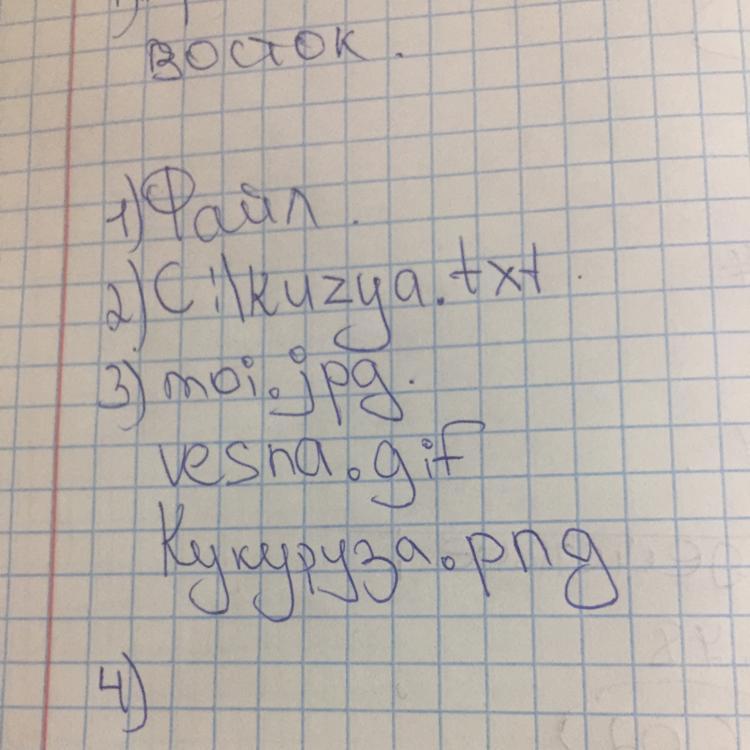 восток.
1) Файл.
2) C:\kuzya.txt.
3) moi.jpg.
vesna.gif
Кукуруза.png
4)